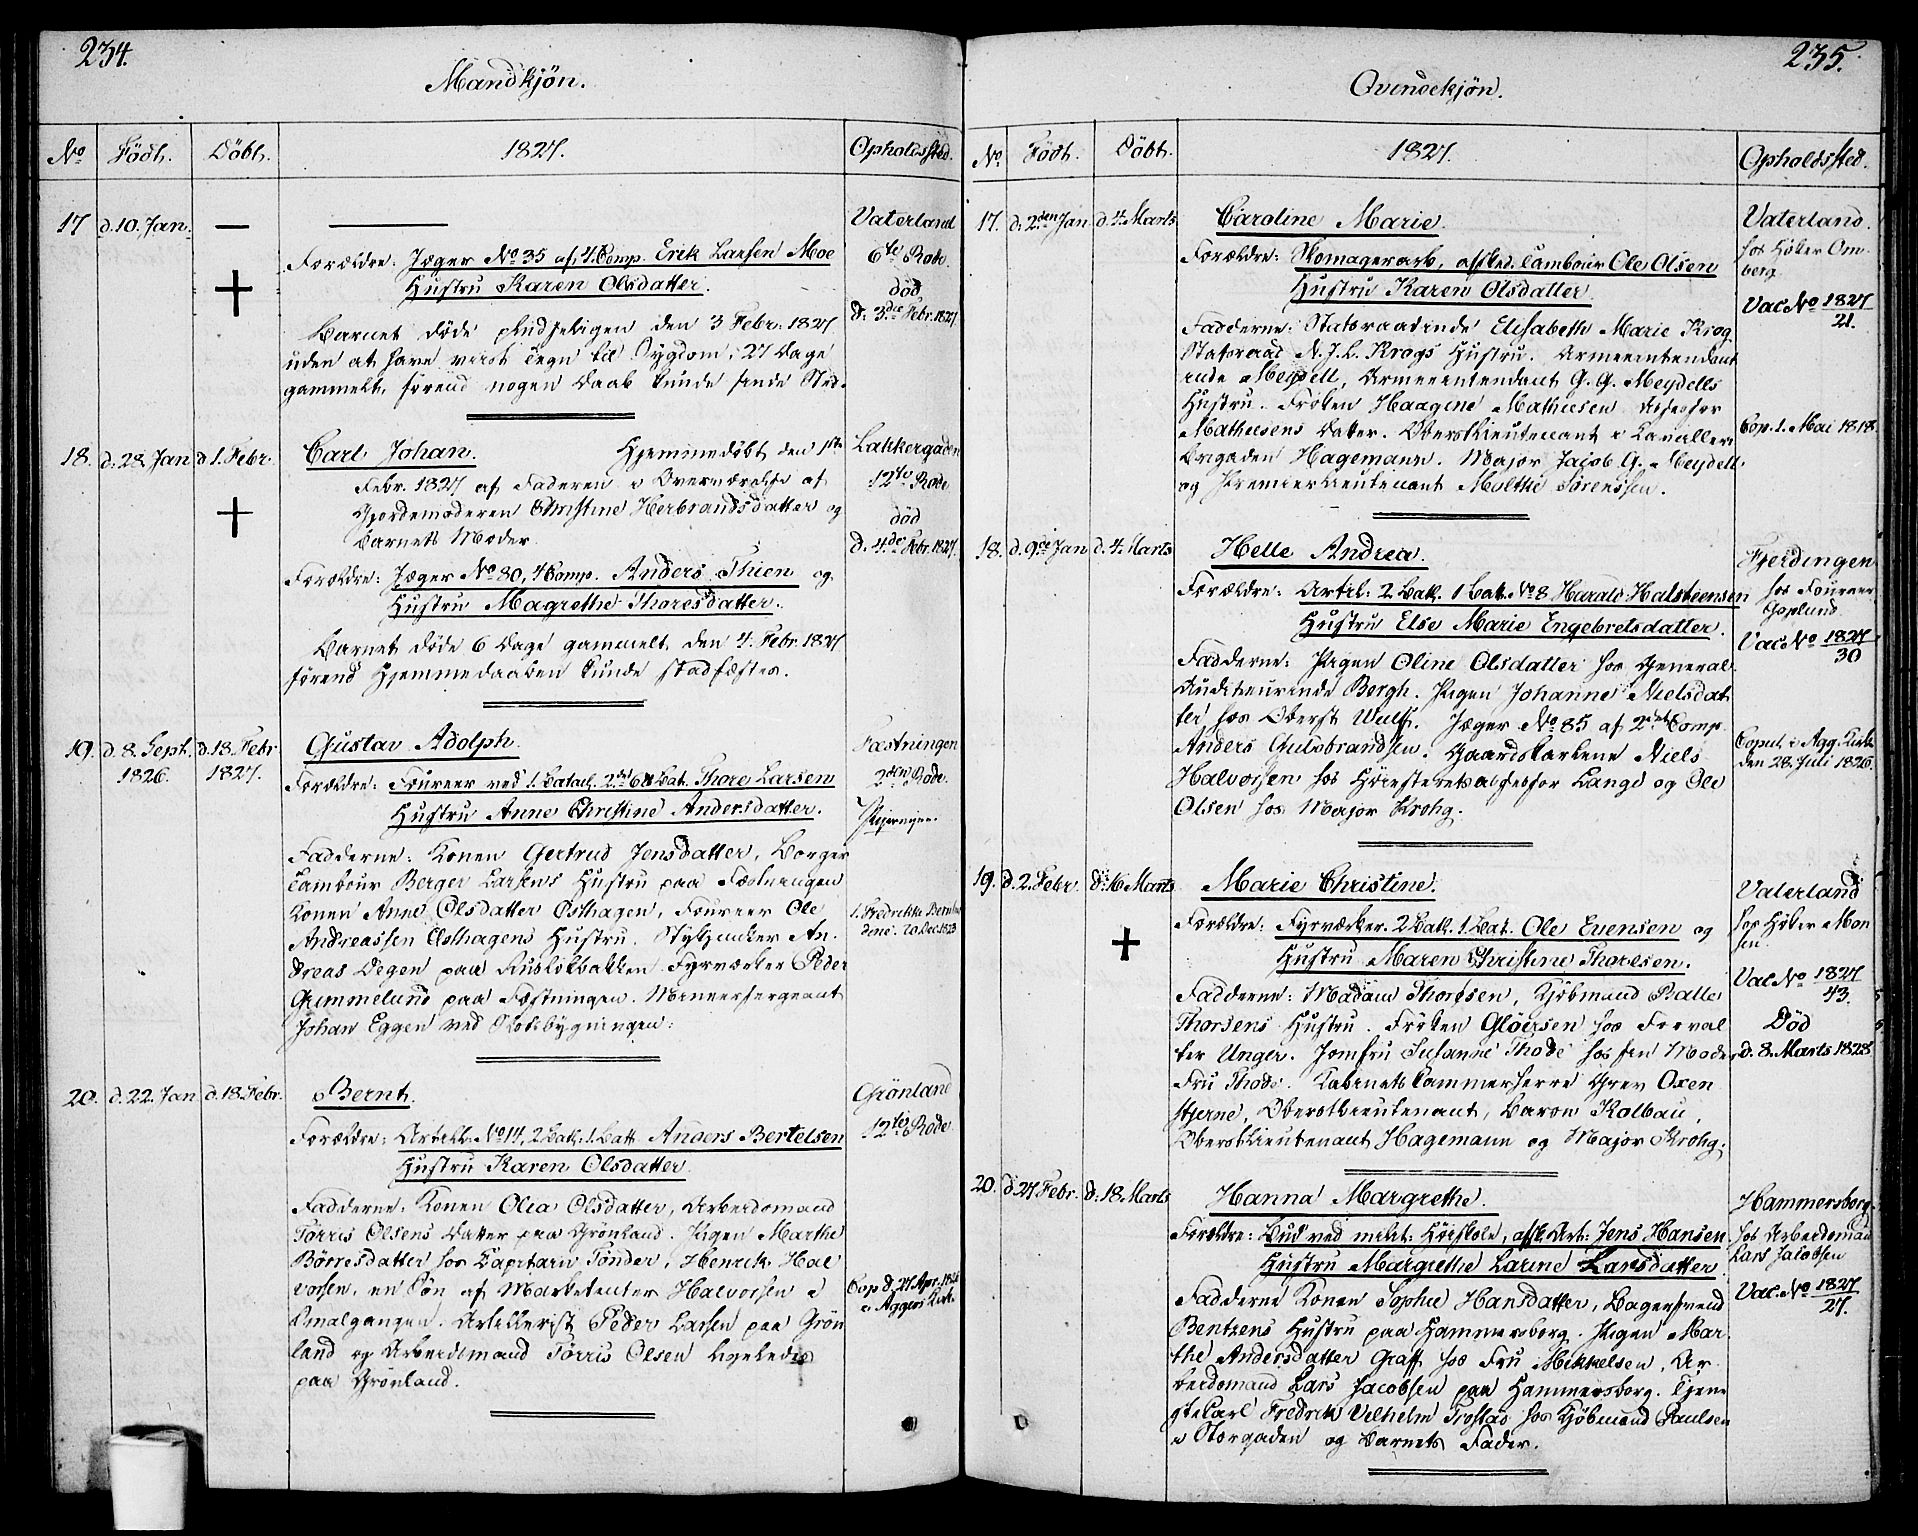 234.
Mandkjøn.
No Født. Døbt. 1827. Opholdssted.
17 d. 10. Jan. — — Vaterland
6te Rode.
Forældre: Jæger No 35 af 4. Comp. Erik Larsen Moe
Hustru Karen Olsdatter.
død
d. 3die Febr. 1827
Barnet døde pludseligen den 3 Febr. 1827
uden at have viist Tegn til Sygdom, 27 Dage
gammelt, førend nogen Daab kunde finde Sted.
18. d. 28. Jan d. 1. Febr. Carl Johan. Hjemmedøbt den 1ste Lakkergaden
Febr. 1827 af Faderen i Overværelse af 12te Rode
Gjordemoderen Christine Herbrandsdatter og død
Barnets Moder d. 4de Febr. 1827.
Forældre: Jæger No 80, 4 Comp. Anders Thien og
Hustru Magrethe Thoresdatter.
Barnet døde 6 Dage gammelt, den 4. Febr 1827
førend Hjemmedaaben kunde stadfæstes.
19. d. 8. Sept. d. 18. Febr Gustav Adolph. Fæstningen
1826. 1827. 2den Rode.
Forældre: Foureer ved 1. Batail. Thore Larsen
Hustru Anne Christine Andersdatter.
Fadderne: Konen Gertrud Jensdatter, Borger
Tambour Berger Larsens Hustru paa Fæstningen
Konen Anne Olsdatter Østhagen, Foureer Ole
Andreassen Østhagens Hustru. Stykjunker An-
dreas Degen paa Ruseløkbakken. Fyrværker Peder
Gummelund paa Fæstningen. Mineersergeant
Johan Eggen ved Slotsbygningen.
20. d. 22. Jan d. 18. Febr. Bernt. Grønland
12te Rode
Forældre: Artill. No 14, 2 Bat. 1. Batt. Anders Bertelsen
Hustru Karen Olsdatter.
Fadderne: Konen Olea Olsdatter, Arbeidsmand
Tørris Olsens Datter paa Grønland. Pigen Marthe
Børresdatter hos Capitain Tønder, Henrik Hal
vorsen, en Søn af Marketenter Halvorsen i
Smalgangen. Artillerist Peder Larsen paa Grøn
land og Arbeidsmand Tørris Olsen ligeledes
paa Grønland.
Cop d. 27 Apr. 1826
i Aggers Kirke
235.
Qvindekjøn.
No. Født. Døbt. 1827. Opholdssted.
17. d. 2den Jan d. 4. Marts Caroline Marie. Vaterland.
hos Høker Om
berg
Forældre: Skomagersv., afsked. Tambour Ole Olsen
Hustru Karen Olsdatter
Vac No 1827/21.
Fadderne: Statsraadinde Elisabeth Marie Krog
Statsraad N. J. L. Krogs Hustru. Armeeintendant
inde Meydell, Armeeintendant G. G. Meydells
Hustru. Frøken Haagine Mathiesen Assessor
Mathiesens Datter. Oberstlieutenant i Cavalleri
Brigaden Hagemann. Major Jacob G. Meydell
og Premierlieutenant Molthe Sørenssen.
Cop. 1. Mai 1818
18. d. 9de Jan d. 4. Marts Helle Andrea. Fjerdingen
hos Foureer
Goplund
Forældre: Artil: 2 Bat. 1 Bat. No 8 Harald Halsteensen
Hustru Else Marie Engebretsdatter.
Vac No 1827/30
Fadderne: Pigen Oline Olsdatter hos General
Auditeurinde Bergh. Pigen Johanne Nielsdat
ter hos Oberst Wulf. Jæger No 85 af 2det Comp
Anders Gulbrandsen. Gaardskarlene Niels
Halvorsen hos Høiesteretsassessor Lange og Ole
Olsen hos Major Krohg.
Copul. i Agg. Kirke
den 28. Juli 1826.
19. d. 2. Febr. d. 16 Marts Marie Christine. Vaterland
hos Høker Mon
sen
Forældre: Fyrværker. 2 Bat. 1. Bat. Ole Evensen og
Hustru Maren Christine Thoresen.
Vac. No 1827/43.
Fadderne: Madam Thoresen, Kjøbmand Balle
Thorsens Hustru. Frøken Gløersen hos Forval
ter Unger. Jomfru Susanne Thode hos sin Moder
Fru Thode. Kabinetskammerherre Grev Oxen
stjerne, Oberstlieutenant, Baron Kolbau,
Oberstlieutenant Hagemann og Major Krohg.
Død
d. 8. Marts 1828
20. d. 27 Febr. d. 18. Marts Hanna Margrethe. Hammersborg
hos Arbeidsmand
Lars Jacobsen
Forældre: Bud ved milit: Høiskole, afsk. Art: Jens Hansen
Hustru Margrethe Larine Larsdatter
Vac. No 1827/27.
Fadderne Konen Sophie Hansdatter, Bagersvend
Bentzens Hustru paa Hammersborg. Pigen Mar
the Andersdatter Graff hos Fru Mikkelsen, Ar
beidsmand Lars Jacobsen paa Hammersborg. Tjene
stekarl Fredrik Vilhelm Trostad hos Kjøbmand Paulsen
i Storgaden og Barnets Fader.